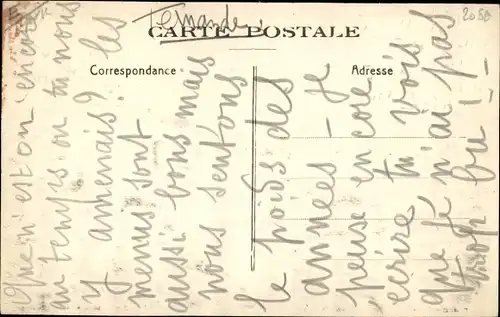 Fernande.
CARTE POSTALE
2080
Correspondance
Adresse
Que n'est on encore
au temps où tu nous
y amenais? les
menus sont
aussi bons mais
nous sentons
le poids des
années - Je
peux encore
écrire, tu vois
que je n'ai pas
trop bu ! -